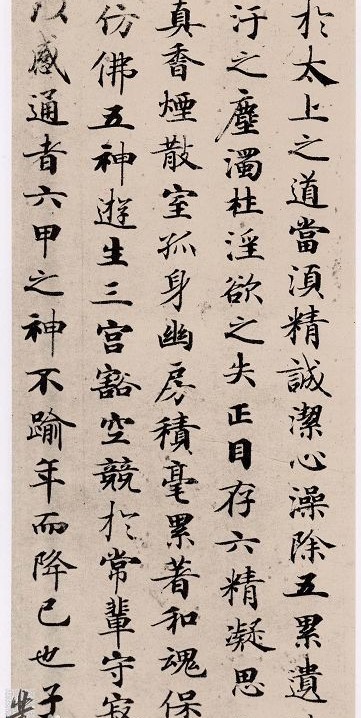 於太上之道當湏精誠潔心澡除五累遺
汙之塵濁杜淫欲之失正目存六精凝思
真香煙散室孤身幽房積毫累著和魂保
仿佛五神遊生三宮豁空競於常輩守寂
以感通者六甲之神不踰年而降已也子